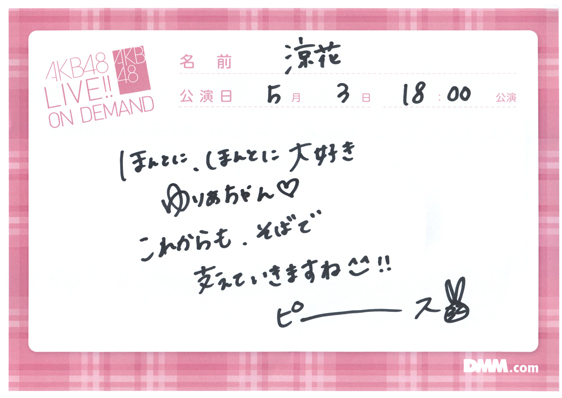 AKB48
LIVE!!
ON DEMAND
AKB
48
名前 涼花
公演日 5月 3日 18:00 公演
ほんとに、ほんとに大好き
ゆりあちゃん♡
これからも、そばで
支えていきますね^^!!
ピース✌
DMM.com